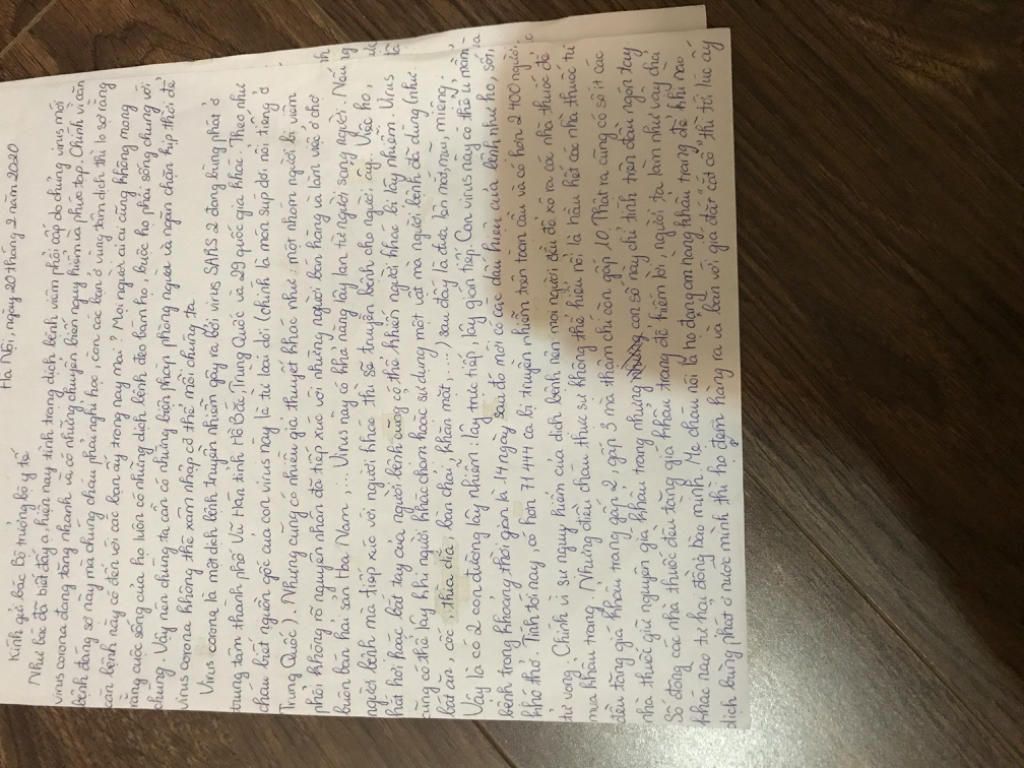 Hà Nội, ngày 20 tháng 2 năm 2020
Kính gửi bác Bộ trưởng bộ y tế
Như bác đã biết đấy ạ, hiện nay tình trạng dịch bệnh viêm phổi cấp do chủng virus mới
virus corona đang tăng nhanh và có những chuyển biến nguy hiểm và phức tạp. Chính vì căn
bệnh đáng sợ này mà chúng cháu phải nghỉ học, còn các bạn ở vùng tâm dịch thì lo sợ rằng
căn bệnh này có đến với các bạn ấy trong nay mai? Mọi người ai ai cũng không mong
rằng cuộc sống của họ luôn có những dịch bệnh đeo bám họ, buộc họ phải sống chung với
chúng. Vậy nên chúng ta cần có những biện pháp phòng ngừa và ngăn chặn kịp thời để
virus corona không thể xâm nhập cơ thể mỗi chúng ta.
Virus corona là một dịch bệnh truyền nhiễm gây ra bởi virus SARS 2 đang bùng phát ở
trung tâm thành phố Vũ Hán tỉnh Hồ Bắc, Trung Quốc và 29 quốc gia khác. Theo như
cháu biết nguồn gốc của con virus này là từ loài dơi (chính là món súp dơi nổi tiếng ở
Trung Quốc). Nhưng cũng có nhiều giả thuyết khác như: một nhóm người bị viêm
phổi không rõ nguyên nhân đã tiếp xúc với những người bán hàng và làm việc ở chợ
buôn bán hải sản Hoa Nam,... Virus này có khả năng lây lan từ người sang người. Nếu
người bệnh mà tiếp xúc với người khác thì sẽ truyền bệnh cho người ấy. Việc ho,
hắt hơi hoặc bắt tay của người bệnh cũng có thể khiến người khác bị lây nhiễm. Virus
cũng có thể lây khi người khác chạm hoặc sử dụng một vật mà người bệnh đã dùng (như:
bát ăn, cốc, thìa dĩa, bàn chải, khăn mặt,...) sau đấy là đưa lên mắt, mũi, miệng.
Vậy là có 2 con đường lây nhiễm: lây trực tiếp, lây gián tiếp. Con virus này có thể ủ mầm
bệnh trong khoảng thời gian là 14 ngày sau đó mới có các dấu hiệu của bệnh như ho, sốt,
khó thở. Tính tới nay, có hơn 71 444 ca bị truyền nhiễm trên toàn cầu và có hơn 2 400 người
tử vong. Chính vì sự nguy hiểm của dịch bệnh nên mọi người đều đổ xô ra các nhà thuốc để
mua khẩu trang. Nhưng điều cháu thực sự không thể hiểu nổi là hầu hết các nhà thuốc từ
đều tăng giá khẩu trang gấp 2, gấp 3 mà thậm chí còn gấp 10. Thật ra cũng có số ít các
nhà thuốc giữ nguyên giá khẩu trang nhưng con số này chỉ tính trên đầu ngón tay.
Số đông các nhà thuốc đều tăng giá khẩu trang để kiếm lời, người ta làm như vậy chả
khác nào tự hại đồng bào mình. Mẹ cháu nói là họ đang om hàng khẩu trang để khi nào
dịch bùng phát ở nước mình thì họ đem hàng ra và bán với giá "cắt cổ" thì lúc ấy